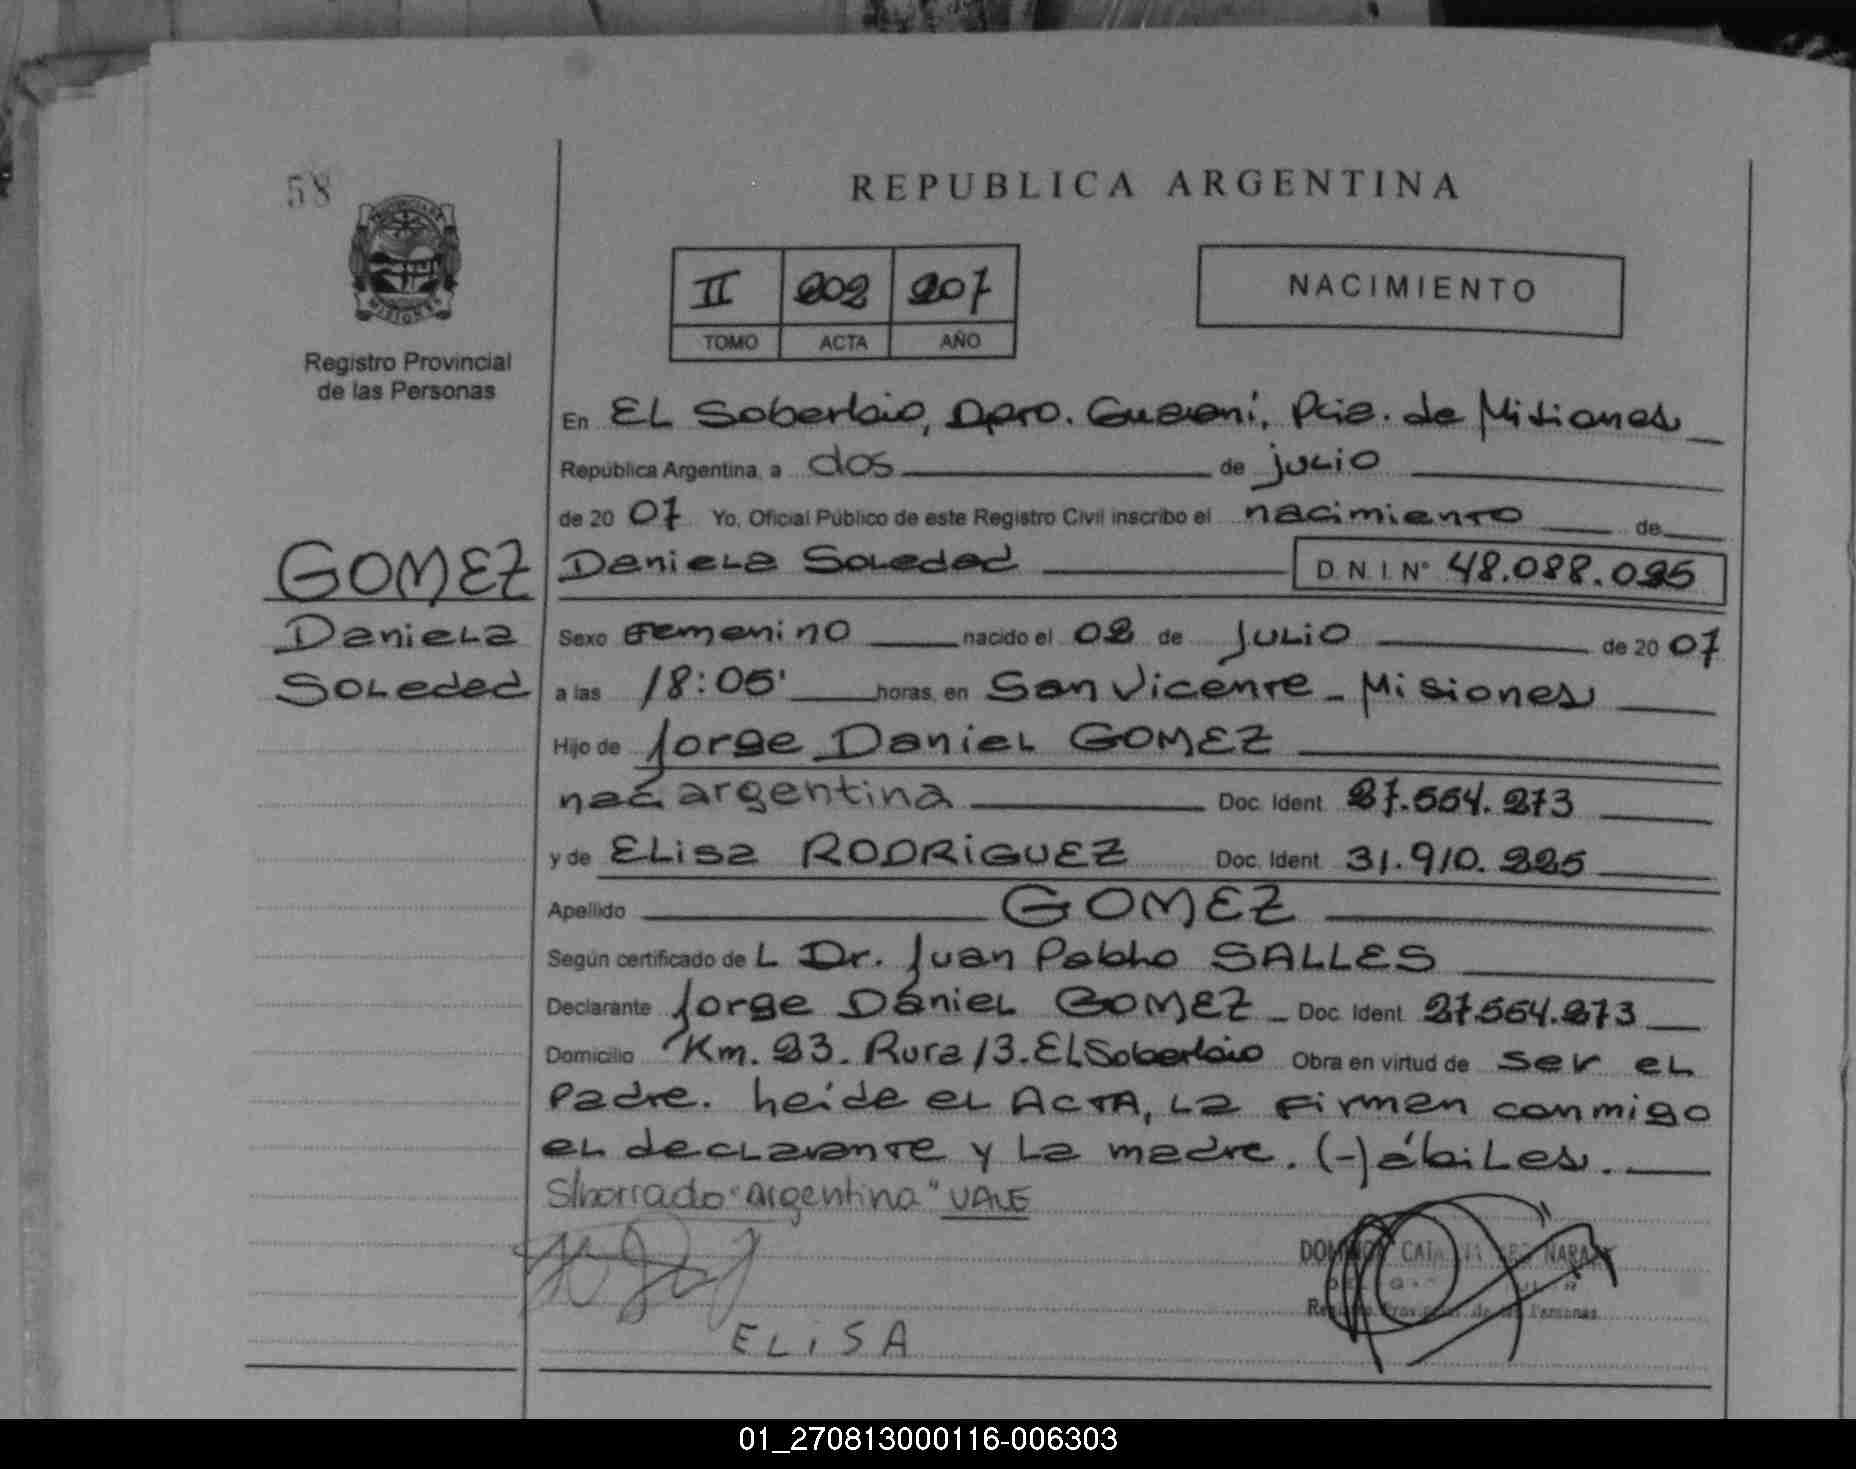 58
REPUBLICA ARGENTINA
PROVINCIA DE
MISIONES
Registro Provincial
de las Personas
II 202 207
TOMO ACTA AÑO
NACIMIENTO
En EL Soberbio, Dpto. Guaraní, Pcia. de Misiones
República Argentina, a dos de julio
de 20 07 Yo, Oficial Público de este Registro Civil inscribo el nacimiento de
GOMEZ
Daniela
Soledad
Daniela Soledad D.N.I. N° 48.088.085
Sexo Femenino nacido el 02 de JULIO de 20 07
a las 18:05' horas, en San Vicente - Misiones
Hijo de Jorge Daniel GOMEZ
nac argentina Doc. Ident. 27.554.273
y de ELisa RODRiGUEZ Doc. Ident. 31.910.225
Apellido GOMEZ
Según certificado de L Dr. Juan Pablo SALLES
Declarante Jorge Daniel GOMEZ - Doc. Ident. 27.554.273
Domicilio Km. 23. Ruta 13. EL Soberbio Obra en virtud de ser el
Padre. Leída el ACTA, La Firman conmigo
el declarante y La madre. (-) ábiles.
S/borrado "argentina" VALE
ELiSA
Registro Provincial de las Personas
01_270813000116-006303